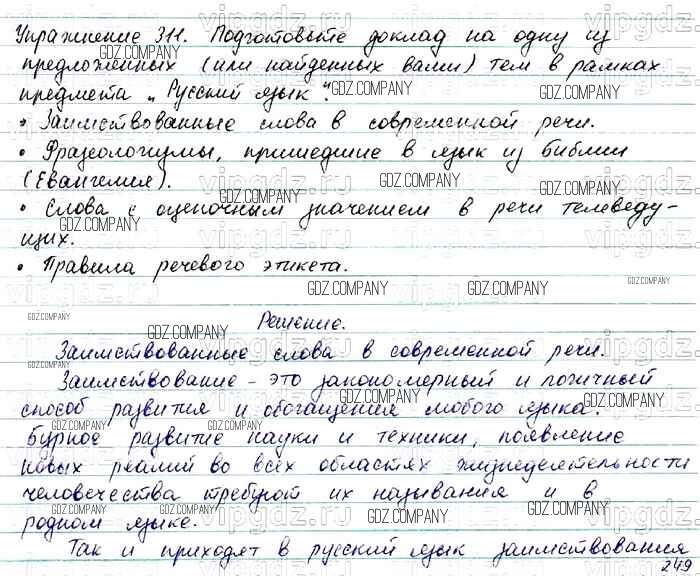 Упражнение 311. Подготовьте доклад на одну из
предложенных (или найденных вами) тем в рамках
предмета „Русский язык".
• Заимствованные слова в современной речи.
• Фразеологизмы, пришедшие в язык из Библии
(Евангелия).
• Слова с оценочным значением в речи телеведу-
щих.
• Правила речевого этикета.
Решение.
Заимствованные слова в современной речи.
Заимствование - это закономерный и логичный
способ развития и обогащения любого языка.
Бурное развитие науки и техники, появление
новых реалий во всех областях жизнедеятельности
человечества требуют их называния и в
родном языке.
Так и приходят в русский язык заимствования
249
GDZ.COMPANY
vipgdz.ru